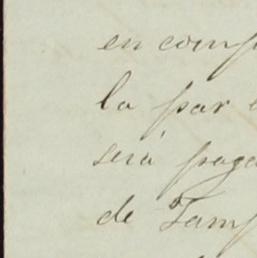 en comp
la par
será paga
de Tamp